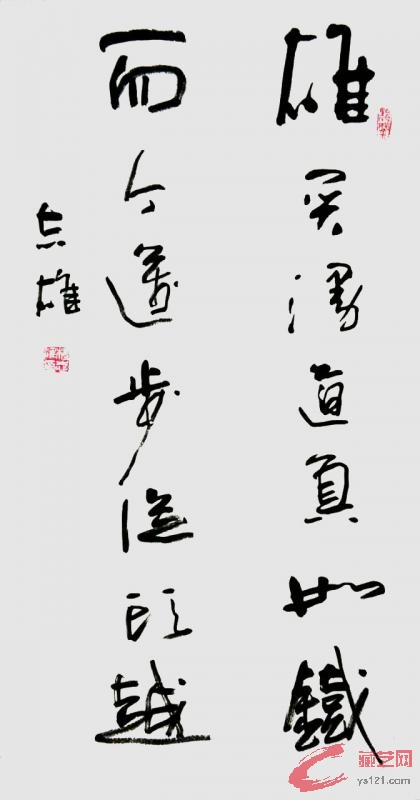 雄関漫道真如鐵
而今邁步從頭越
志雄
藏艺网
ys121.com